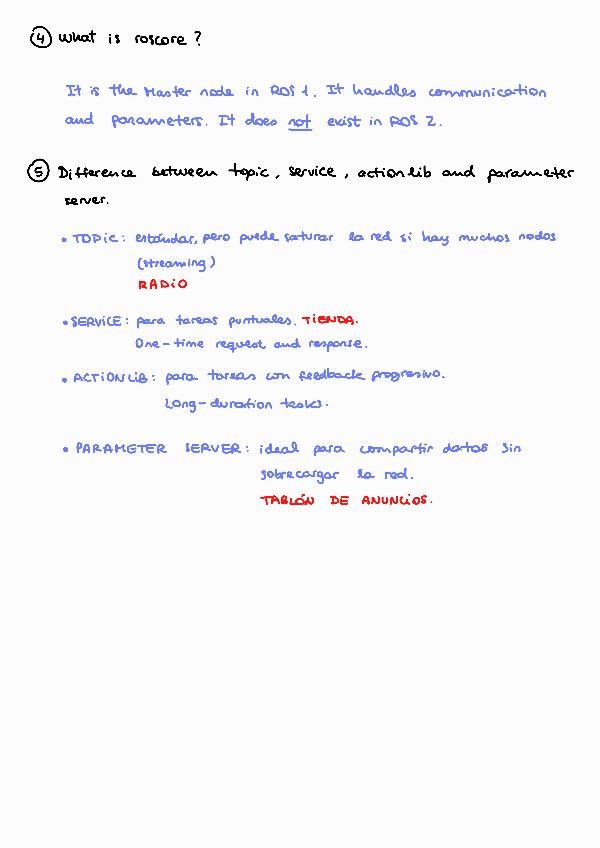 4 What is roscore?
It is the Master node in ROS 1. It handles communication
and parameters. It does not exist in ROS 2.
5 Difference between topic, service, actionlib and parameter
server.
• TOPIC: estándar, pero puede saturar la red si hay muchos nodos
(streaming)
RADIO
• SERVICE: para tareas puntuales. TIENDA.
One-time request and response.
• ACTIONLIB: para tareas con feedback progresivo.
Long-duration tasks.
• PARAMETER SERVER: ideal para compartir datos sin
sobrecargar la red.
TABLÓN DE ANUNCIOS.